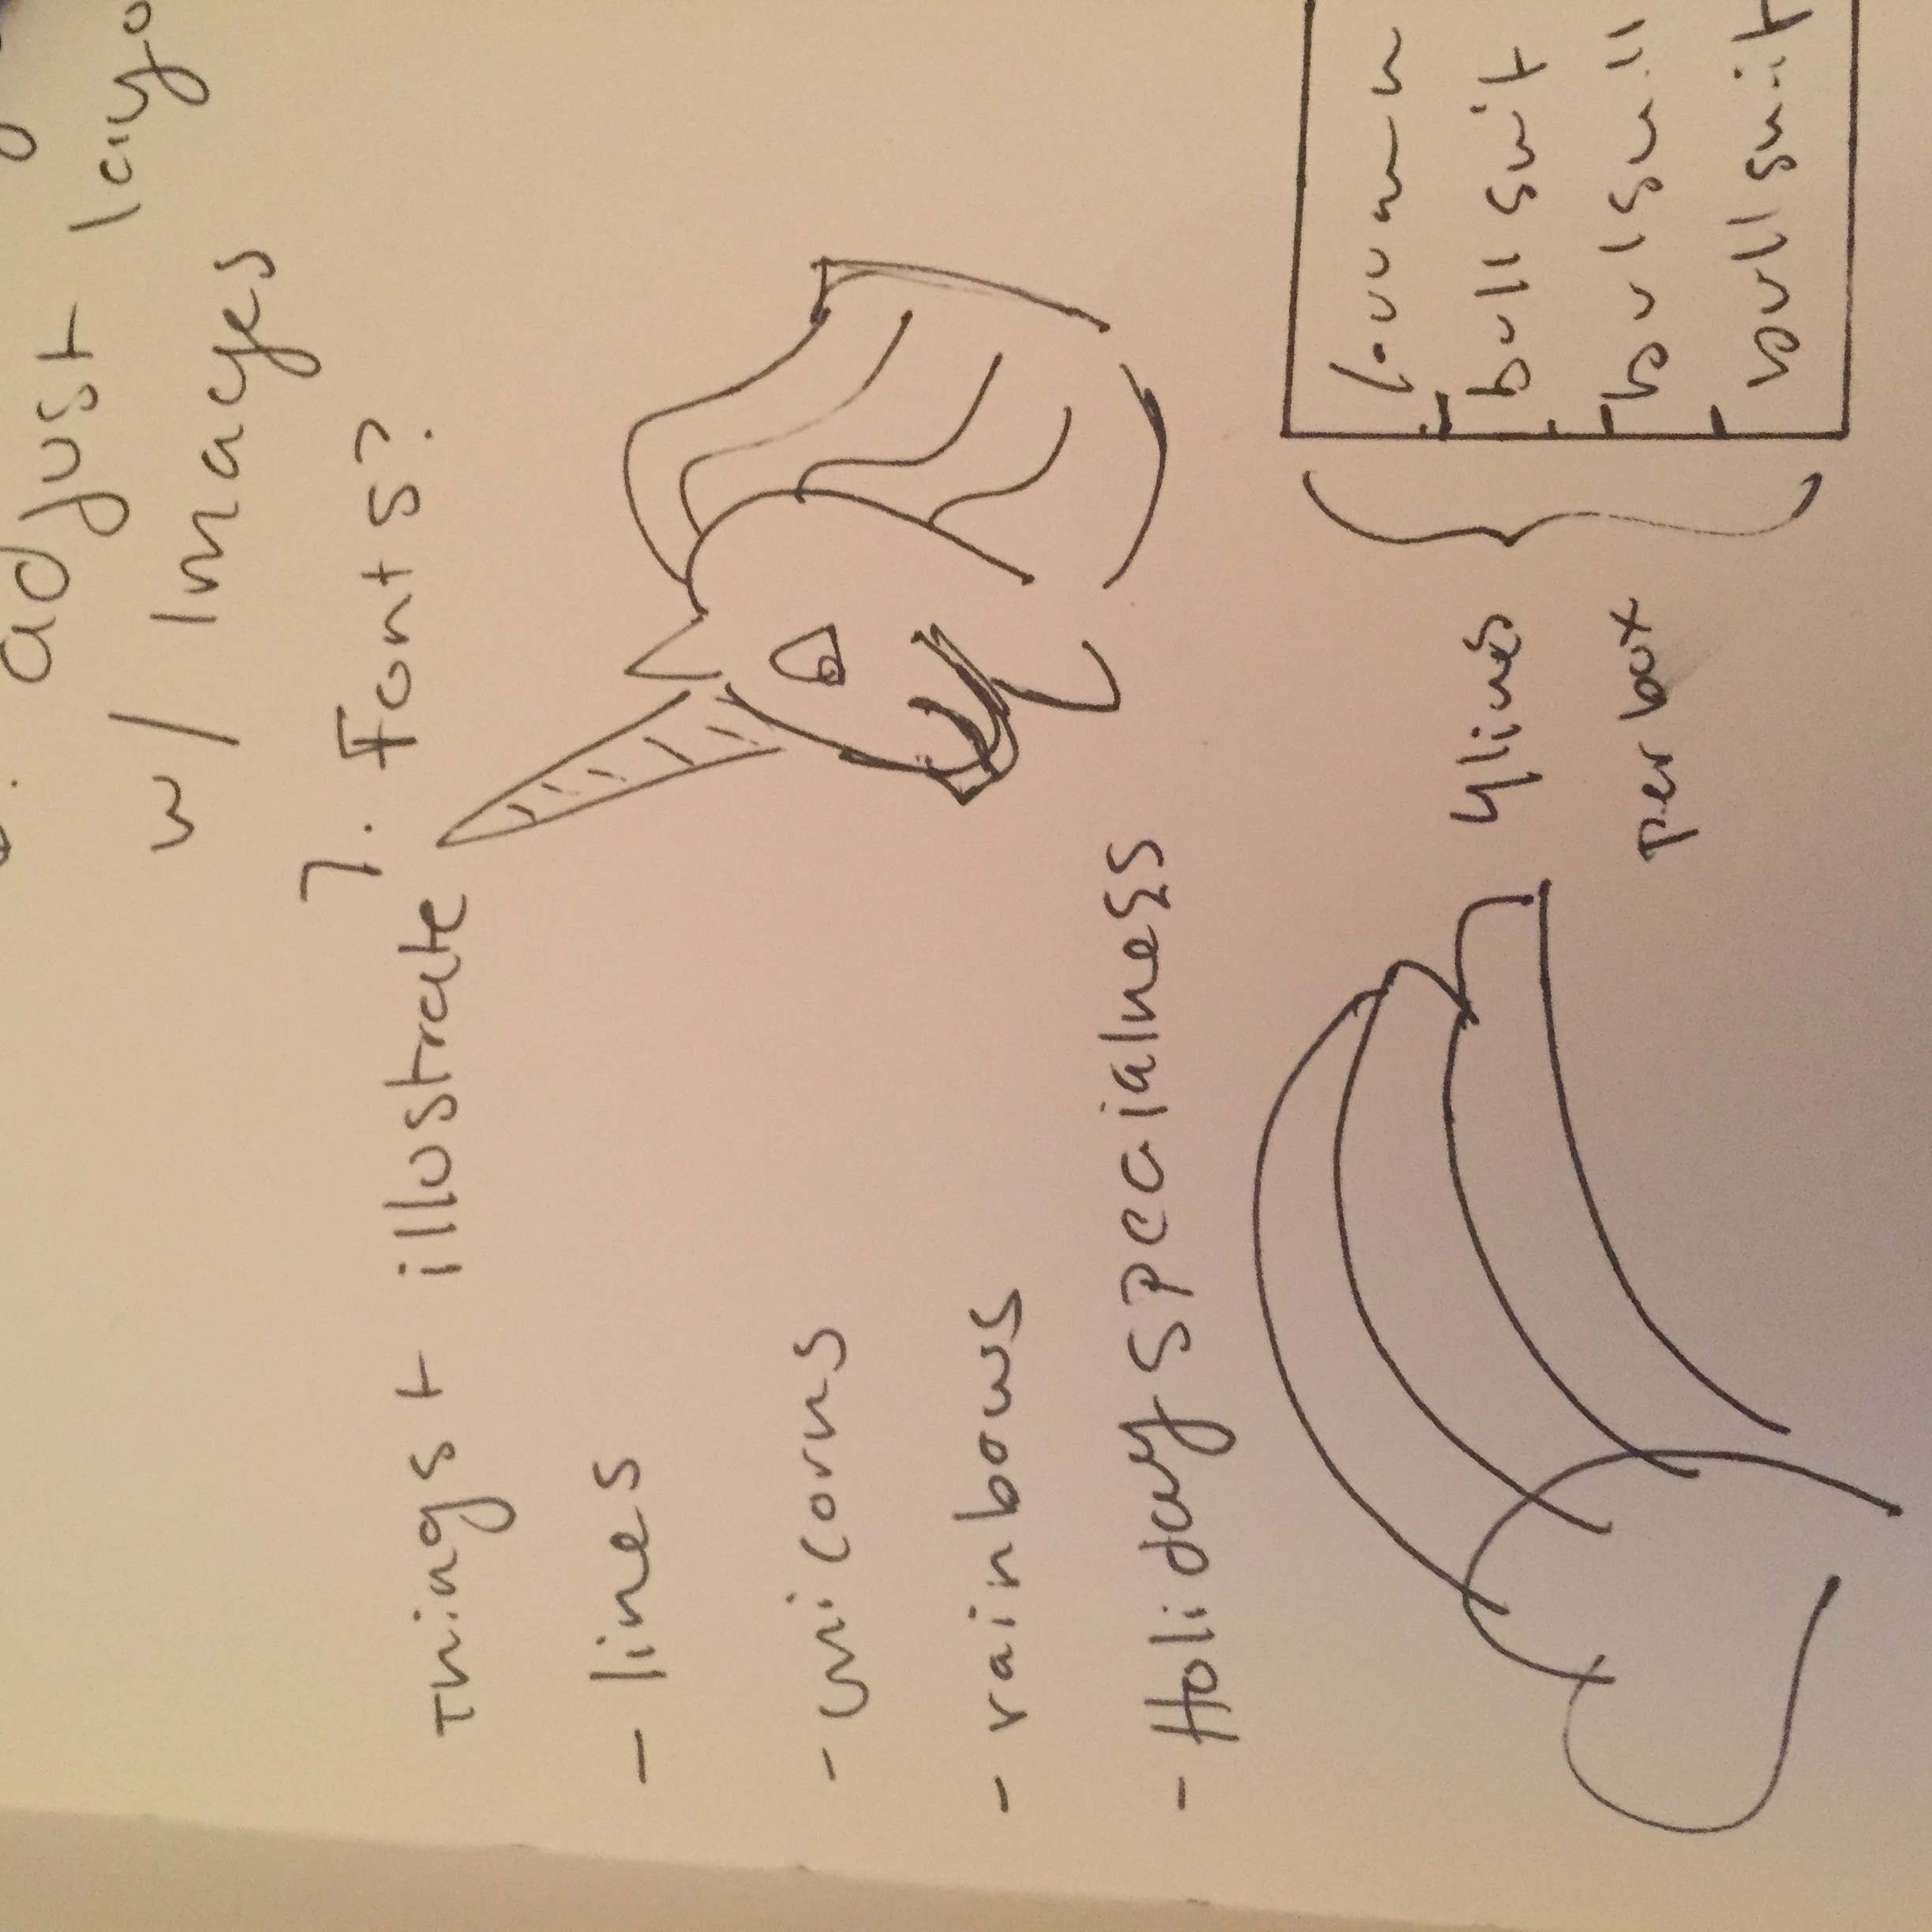 adjust layo
w/ Images
7. Fonts?
Things t illustrate
- lines
- unicorns
- rainbows
- Holiday specialness
4 lines
per box
bull suit
bull suit